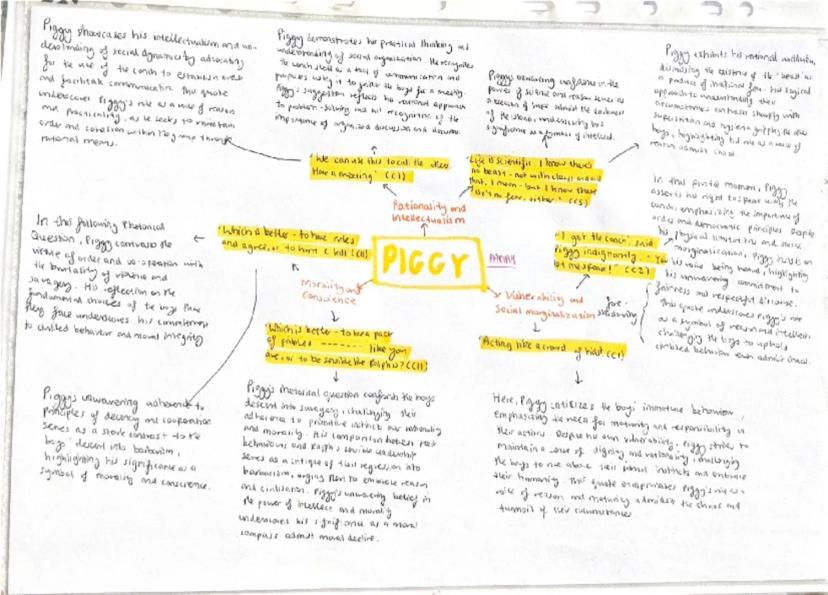 Piggy showcases his intellectualism and un-
derstanding of social dynamics by advocating
for the use of the conch to establish order
and facilitate communication. This quote
underscores Piggy's role as a voice of reason
and practicality, as he seeks to maintain
order and cohesion within the group through
rational means.
Piggy demonstrates his practical thinking and
understanding of social organisation. He recognises
the conch shell as a tool of communication and
purposes using it to gather the boys for a meeting.
Piggy's suggestion reflects his rational approach
to problem-solving and his recognition of the
importance of organized discussion and discourse.
Piggy's unwavering confidence in the
powers of science and reason serves as
a beacon of hope admist the darkness
of the island, underscoring his
significance as a of intellect.
Piggy exhibits his rational
dismissing the existence of the 'beast' as
a product of irrational fear. His logical
approach to understanding their
circumstances contrasts sharply with
superstition and hysteria gripping the other
boys, highlighting his role as a voice of
reason admist chaos.
'We can use this to call the others.
Have a meeting' (C1)
'Life is scientific. I know there's
no beast - not with claws and all
that, I mean - but I know there
isn't no fear, either.' (C5)
Rationality and
Intellectualism
'Which is better - to have rules
and agree, or to hunt & kill' (C11)
PIGGY
Morality and
conscience
Vulnerability and
Social marginalization
'I got the conch', said
Piggy indignantly.
let me speak!' (C2)
fore-
shadowing
In this following Rhetorical
Question, Piggy contrasts the
virtue of order and co-operation with
the brutality of violence and
savagery. His reflection on the
fundamental choices of the boys
they face underscores his commitment
to civilised behavior and moral integrity
In this moment, Piggy
asserts his right to speak with the
conch, emphasizing the importance of
order and democratic principles. Despite
his physical limitations and social
marginalization, Piggy insists on
his voice being heard, highlighting
his unwavering commitment to
fairness and respectful discourse.
This quote underscores Piggy's role
as a symbol of reason and intellect,
challenging the boys to uphold
civilised behaviour even admist chaos.
'Which is better - to be a pack
of painted -------- like you
are, or to be sensible like Ralph is?' (C11)
'Acting like a crowd of kids!' (C1)
Piggy's unwavering adherence to
principles of decency and cooperation
serves as a stark contrast to the
boys' descent into barbarism,
highlighting his significance as a
symbol of morality and conscience.
Piggy's rhetorical question confronts the boys
descent into savagery, challenging their
adherence to primitive instincts over rationality
and morality. His comparison between their
behaviour and Ralph's sensible leadership
serves as a critique of their regression into
barbarism, urging them to embrace reason
and civilisation. Piggy's unwavering belief in
the power of intellect and morality
underscores his significance as a moral
compass admist moral decline.
Here, Piggy criticizes the boys' immature behaviour,
emphasizing the need for maturity and responsibility in
their actions. Despite his own vulnerability, Piggy strives to
maintain a sense of dignity and rationality, challenging
the boys to rise above their instincts and embrace
their humanity. This quote Piggy's role as a
voice of reason and maturity admidst the chaos and
turmoil of their circumstances